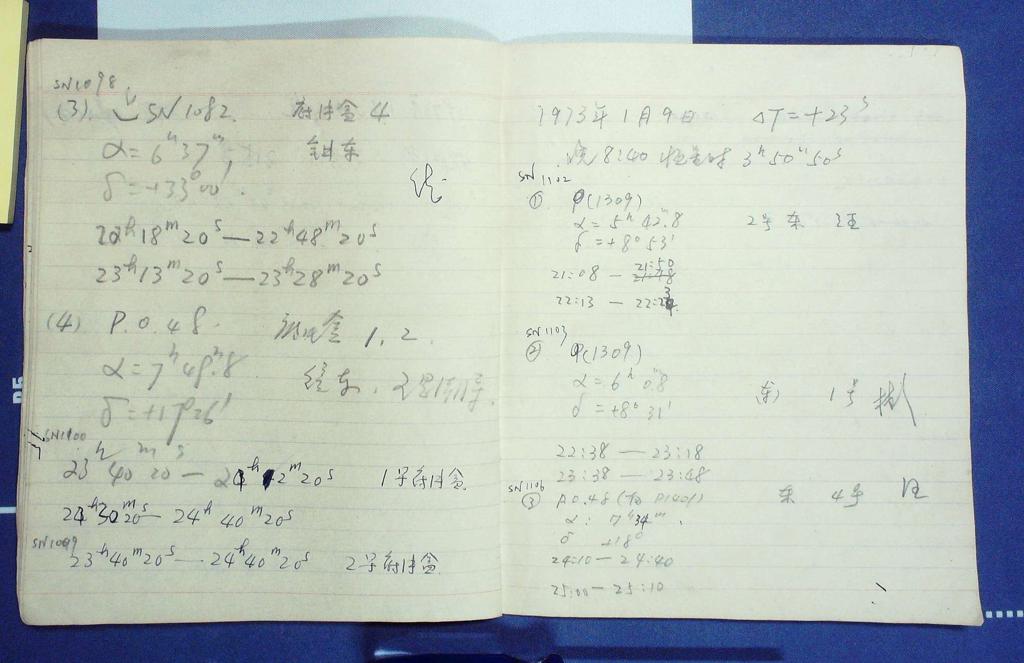 SN1098
(3) SN1082. 底片盒 4
α=6ʰ37ᵐ,
δ=+33°00′.
22ʰ18ᵐ20ˢ—22ʰ48ᵐ20ˢ
23ʰ13ᵐ20ˢ—23ʰ28ᵐ20ˢ
(4) P.O.48. 底片盒 1,2.
α=7ʰ48ᵐ.8
SN1100
23ʰ40ᵐ20ˢ— 1号底片盒
24ʰ30ᵐ20ˢ—24ʰ40ᵐ20ˢ
SN1099
23ʰ40ᵐ20ˢ—24ʰ40ᵐ20ˢ 2号底片盒
1973年1月9日 ΔT=+23ˢ
晚8:40 恒星时 3ʰ50ᵐ50ˢ
SN1102
① φ(1309)
α=5ʰ42ᵐ.8 2号 东 汪
δ=+8°53′
21:08—21:50
22:13—
SN1103
② φ(1309)
α=6ʰ0.8
δ=+8°31′ (东) 1号
22:38—23:18
23:38—23:48
SN1106
③ P.O.48 (To P1401) 东 4号 汪
α: 7ʰ34ᵐ.
δ +18°
24:10—24:40
25:00—25:10